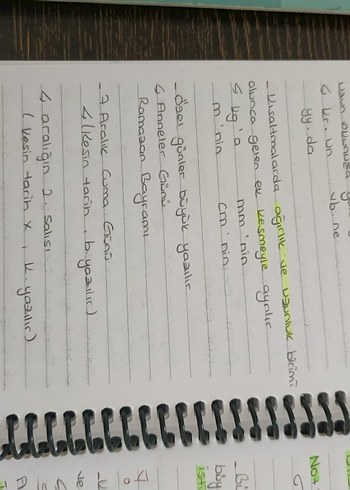 uzun okunuşa
↳ kr. un vb. ne
yy. da
- Kısaltmalarda ağırlık ve uzunluk birimi
olunca gelen ek kesmeyle ayrılır
↳ kg'a mm'nin
m'nin cm'nin
- Özel günler büyük yazılır
↳ Anneler Günü
Ramazan Bayramı
- 7 Aralık Cuma Günü
↳ (Kesin tarih, b. yazılır)
↳ aralığın 2. salısı
(kesin tarih x, k. yazılır)
Not
- Bi
büy
isti